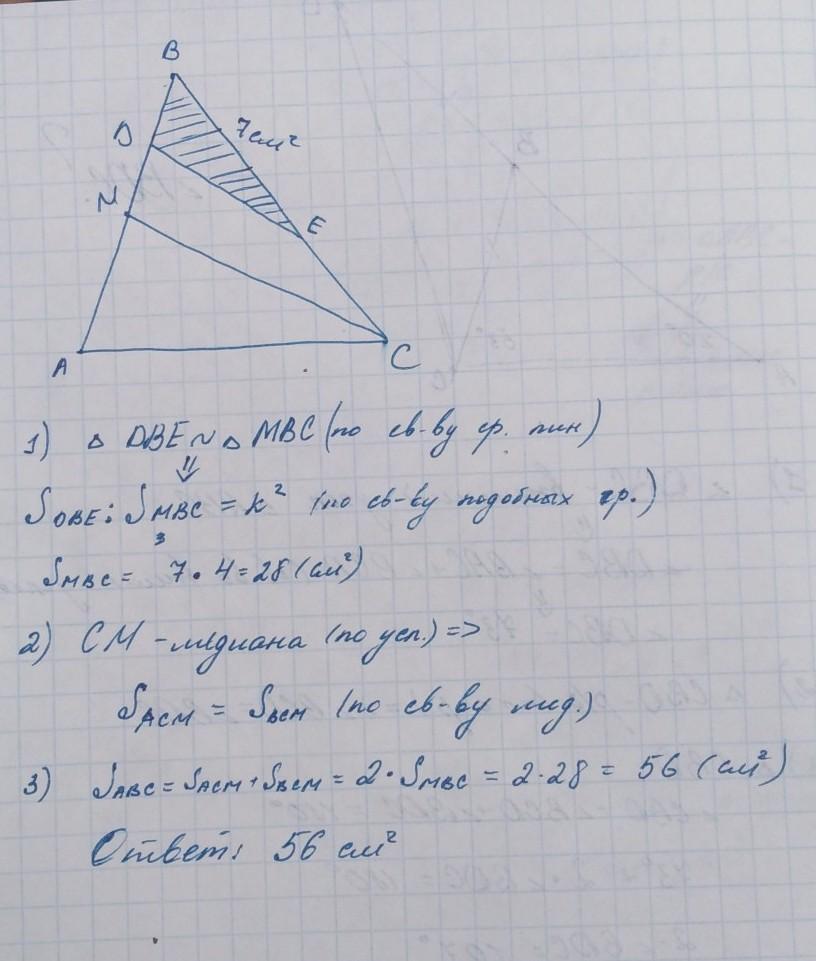 B
7 см²
D
M
E
A
C
1) △ DBE ~ △ MBC (по св-ву ср. лин)
⇓
S DBE : S MBC = k² (по св-ву подобных тр.)
S MBC = 7 · 4 = 28 (см²)
2) CM - медиана (по усл.) =>
S ACM = S BCM (по св-ву мед.)
3) S ABC = S ACM + S BCM = 2 · S MBC = 2 · 28 = 56 (см²)
Ответ: 56 см²